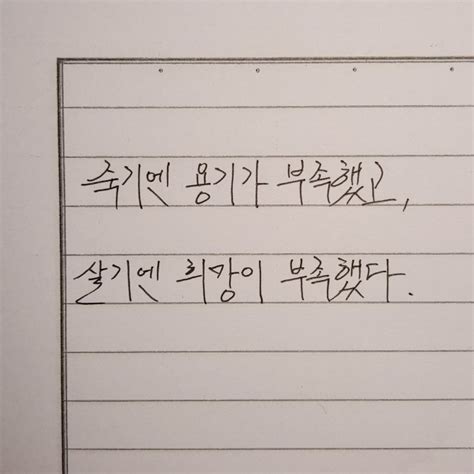 죽기엔 용기가 부족했고,
살기엔 희망이 부족했다.